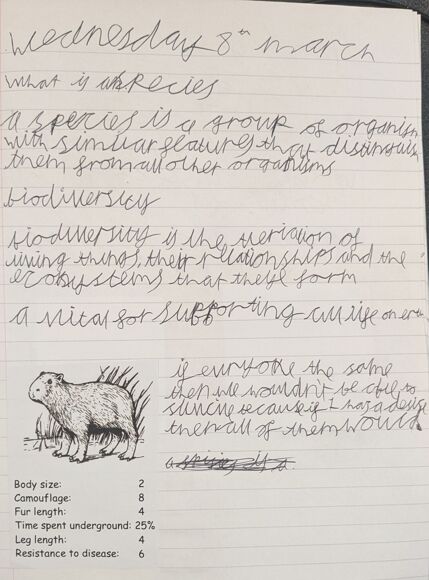 Wednesday 8th march
What is a species
a species is a group of organism
with similar features that distinguish
them from all other organisms
biodiversity
biodiversity is the variation of
living things, their relationships and the
ecosystems that these form
a vital for supporting all life on earth
if euryone the same
then we wouldn't be able to
survive because if 1 has a
then all of them would
Body size: 2
Camouflage: 8
Fur length: 4
Time spent underground: 25%
Leg length: 4
Resistance to disease: 6